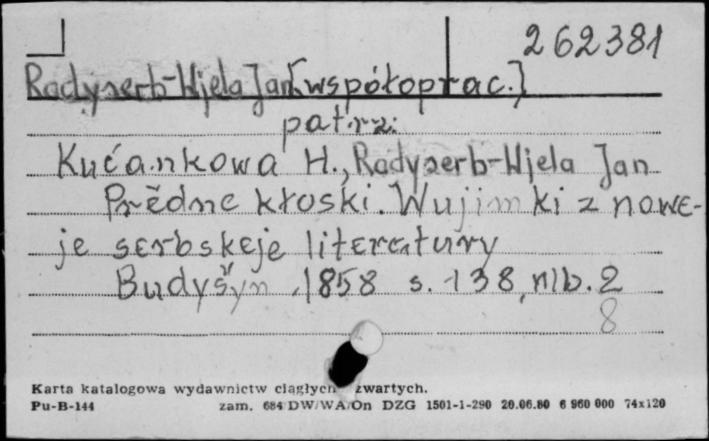 262381
Radyserb-Wjela Jan [współoprac.]
patrz:
Kućankowa H., Radyserb-Wjela Jan
Prědne kłoski. Wujimki z nowe-
je serbskeje literatury
Budyšyn, 1858 s. 138, nlb. 2
8
Karta katalogowa wydawnictw ciągłych zwartych.
Pu-B-144 zam. 684 DW/WA/On DZG 1501-1-290 20.06.80 6 960 000 74x120